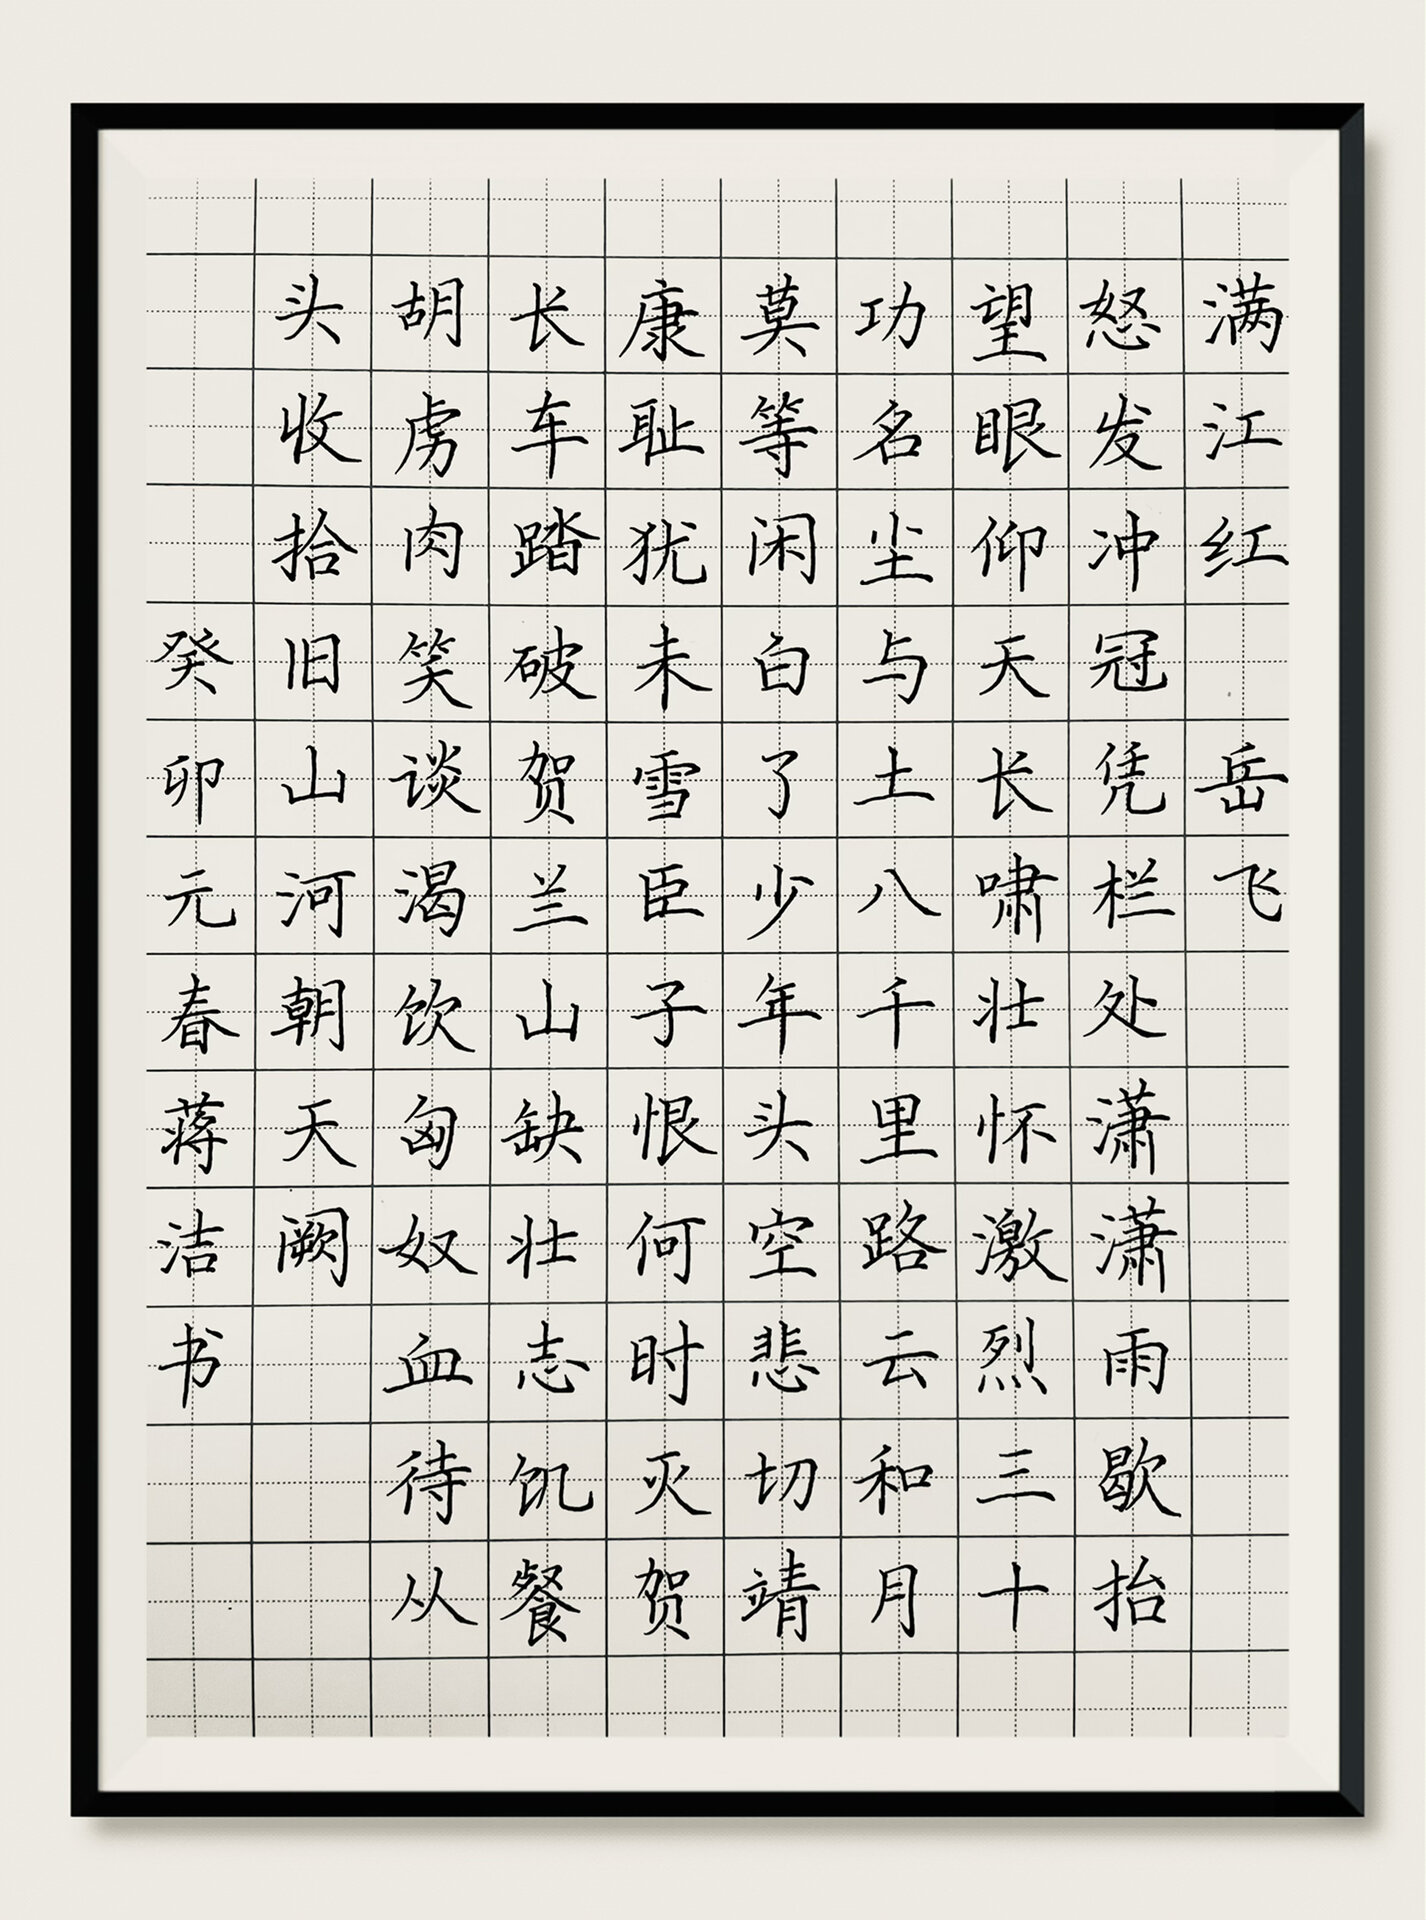 满江红 岳飞
怒发冲冠凭栏处潇潇雨歇抬
望眼仰天长啸壮怀激烈三十
功名尘与土八千里路云和月
莫等闲白了少年头空悲切靖
康耻犹未雪臣子恨何时灭贺
长车踏破贺兰山缺壮志饥餐
胡虏肉笑谈渴饮匈奴血待从
头收拾旧山河朝天阙
癸卯元春蒋洁书